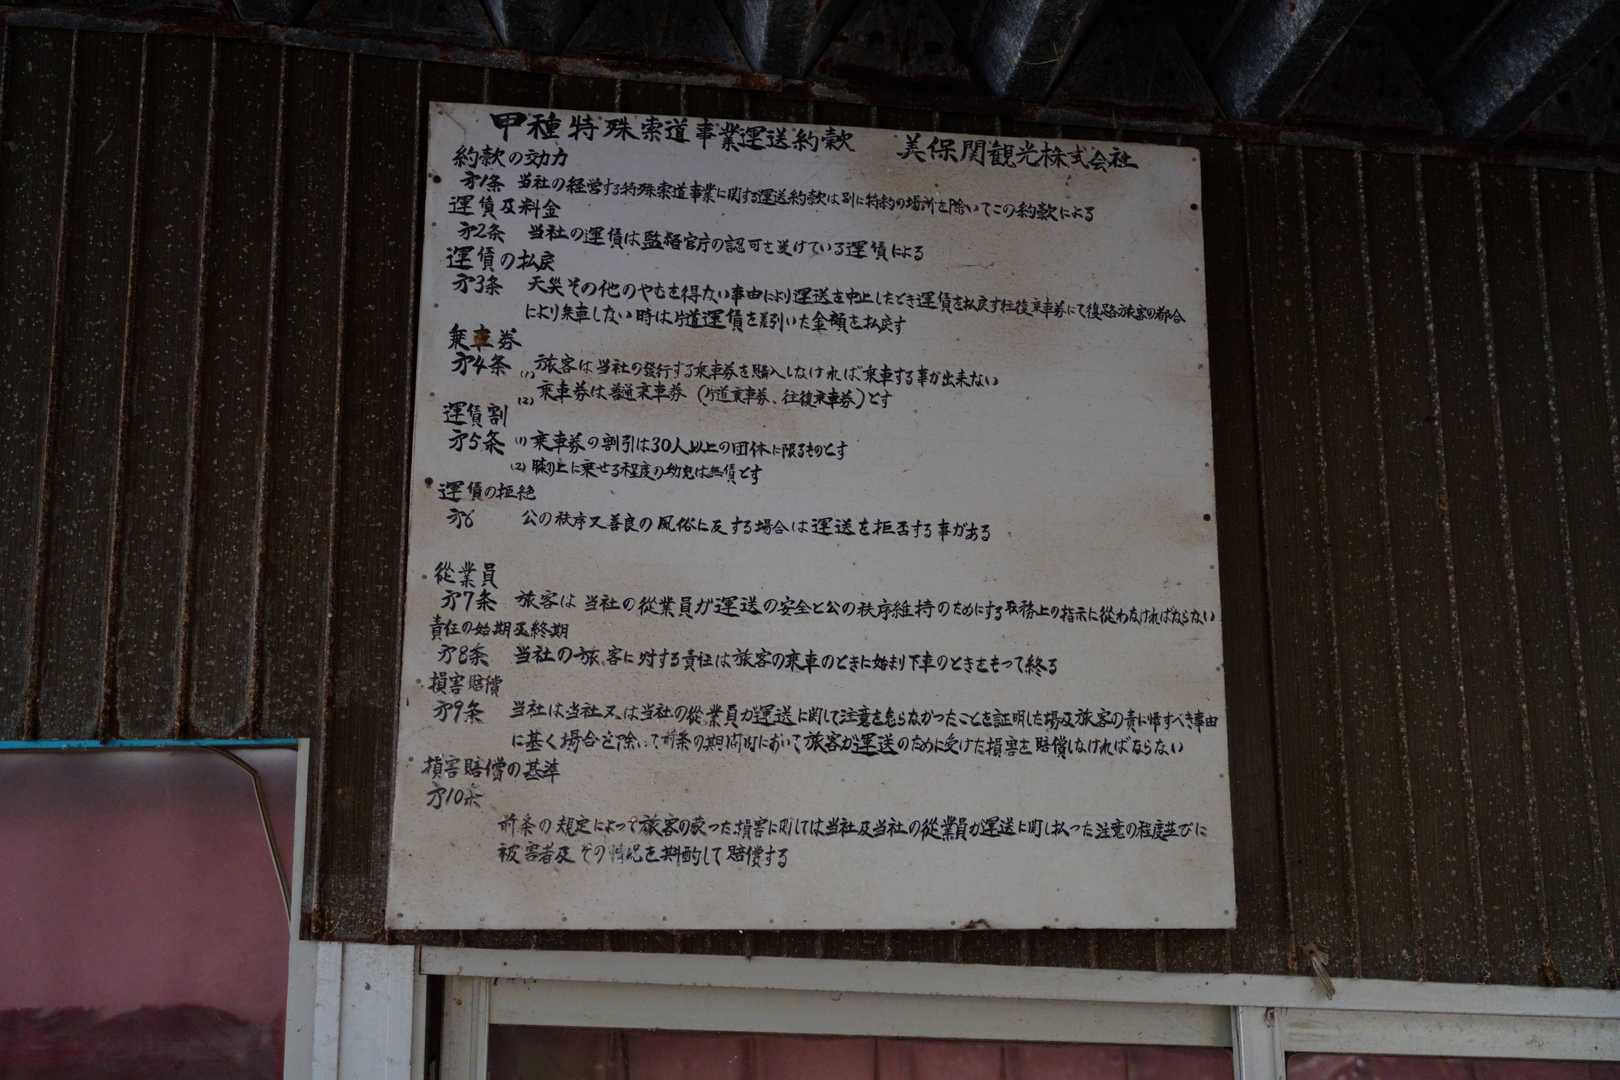 甲種特殊索道事業運送約款　美保関観光株式会社
約款の効力
才1条 当社の経営する特殊索道事業に関する運送約款は別に特約の場所を除いてこの約款による
運賃及料金
才2条 当社の運賃は監督官庁の認可を受けている運賃による
運賃の払戻
才3条 天災その他のやむを得ない事由により運送を中止したとき運賃を払戻す往復乗車券にて復路旅客の都合
により乗車しない時は片道運賃を差引いた金額を払戻す
乗車券
才4条 (1) 旅客は当社の発行する乗車券を購入しなければ乗車する事が出来ない
(2) 乗車券は普通乗車券 (片道乗車券、往復乗車券)とす
運賃割
才5条 (1) 乗車券の割引は30人以上の団体に限るものとす
(2) 膝の上に乗せる程度の幼児は無賃とす
運賃の拒絶
才6 公の秩序又善良の風俗に反する場合は運送を拒否する事がある
従業員
才7条 旅客は当社の従業員が運送の安全と公の秩序維持のためにする職務上の指示に従わなければならない
責任の始期及終期
才8条 当社の旅客に対する責任は旅客の乗車のときに始まり下車のときをもって終る
損害賠償
才9条 当社は当社又は当社の従業員が運送に関して注意を怠らなかったことを証明した場及旅客の責に帰すべき事由
に基く場合を除いて前条の期間内において旅客が運送のために受けた損害を賠償しなければならない
損害賠償の基準
才10条
前条の規定によって旅客の蒙った損害に関しては当社及当社の従業員が運送に関し払った注意の程度並びに
被害者及その情況を斟酌して賠償する